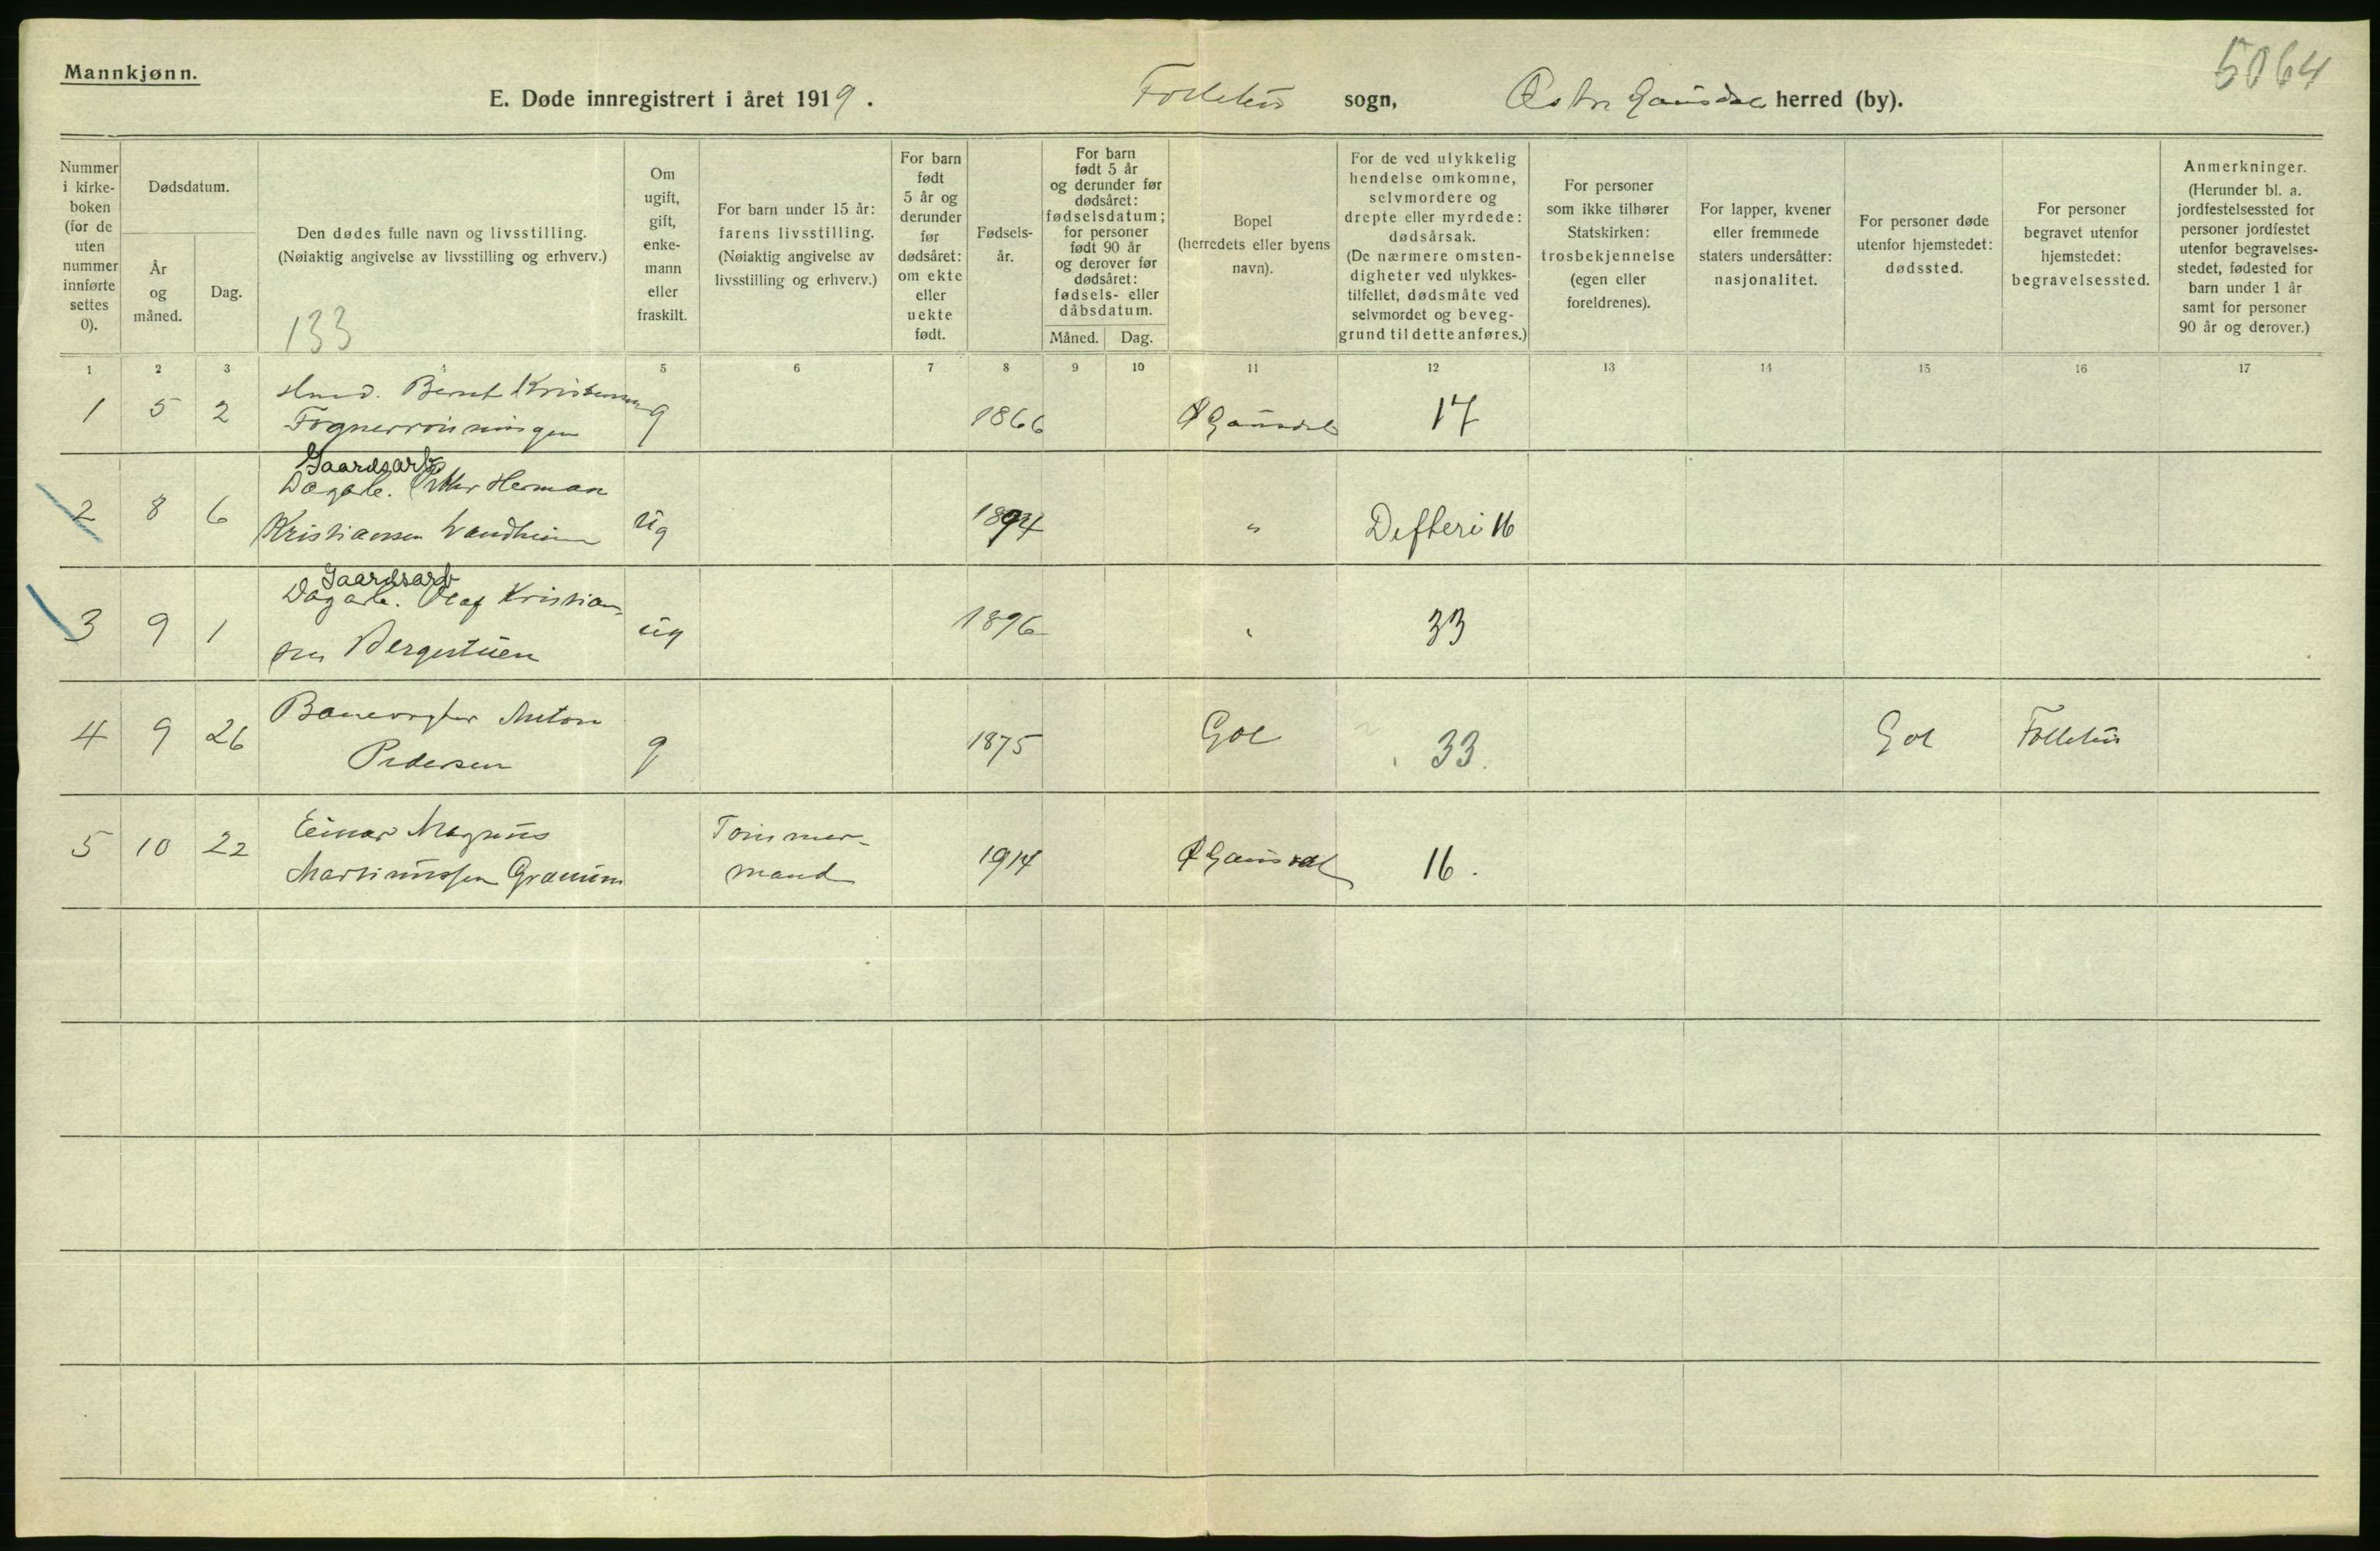 Mannkjønn.
5064
E. Døde innregistrert i året 1919. Follebu sogn, Østre Gausdal herred (by).
Nummer i kirke- boken (for de uten nummer innførte settes 0).
Dødsdatum.
År og måned.
Dag.
Den dødes fulle navn og livsstilling.
(Nøiaktig angivelse av livsstilling og erhverv.)
133
Om ugift, gift, enke- mann eller fraskilt.
For barn under 15 år: farens livsstilling. (Nøiaktig angivelse av livsstilling og erhverv.)
For barn født 5 år og derunder før dødsåret: om ekte eller uekte født.
Fødsels- år.
For barn født 5 år og derunder før dødsåret: fødselsdatum; for personer født 90 år og derover før dødsåret: fødsels- eller dåbsdatum.
Måned. Dag.
Bopel (herredets eller byens navn).
For de ved ulykkelig hendelse omkomne, selvmordere og drepte eller myrdede: dødsårsak. (De nærmere omsten- digheter ved ulykkes- tilfellet, dødsmåte ved selvmordet og beveg- grund til dette anføres.)
For personer som ikke tilhører Statskirken: trosbekjennelse (egen eller foreldrenes).
For lapper, kvener eller fremmede staters undersåtter: nasjonalitet.
For personer døde utenfor hjemstedet: dødssted.
For personer begravet utenfor hjemstedet: begravelsessted.
Anmerkninger. (Herunder bl. a. jordfestelsessted for personer jordfestet utenfor begravelses- stedet, fødested for barn under 1 år samt for personer 90 år og derover.)
1 2 3 4 5 6 7 8 9 10 11 12 13 14 15 16 17
1 5 2 Bernt Kristensen g 1866 Ø Gausdal 17
Gaardsarb
2 8 6 Dagarb. Petter Herman
Kristiansen ug 1894 " Defteri 16
Gaardsarb
3 9 1 Dagarb. Olaf Kristian-
sen Bergestuen ug 1896 " 33
4 9 26 Banevogter Anton
Pedersen g 1875 Gol 33. Gol Follebu
5 10 22 Einar Magnus Tømmer-
Martinussen Granum mand 1914 Ø Gausdal 16.